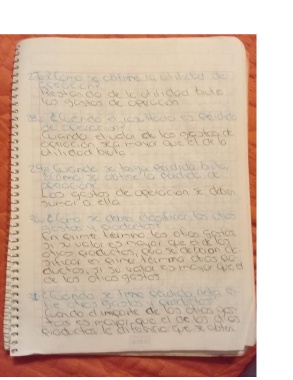 27. ¿Cómo se obtiene la utilidad de
operación?
Restando de la utilidad bruta
los gastos de operación
28. ¿Cuándo el resultado es pérdida
de operación?
Cuando el valor de los gastos de
operación sea mayor que el de la
utilidad bruta
29. Cuando se tiene pérdida bruta
¿cómo se obtiene la pérdida de
operación?
Los gastos de operación se deben
sumar a ella
¿Cómo se deben clasificar los otros
gastos y productos?
En primer término los otros gastos
si su valor es mayor que el de los
otros productos, pero se deberán cla
sificar en primer término otros pro
ductos, si su valor es mayor que el
de los otros gastos
¿Cuándo se tiene pérdida neta
e otros gastos y productos?
Cuando el importe de los otros gas-
tos es mayor que el de los otros
productos la diferencia que se obtien